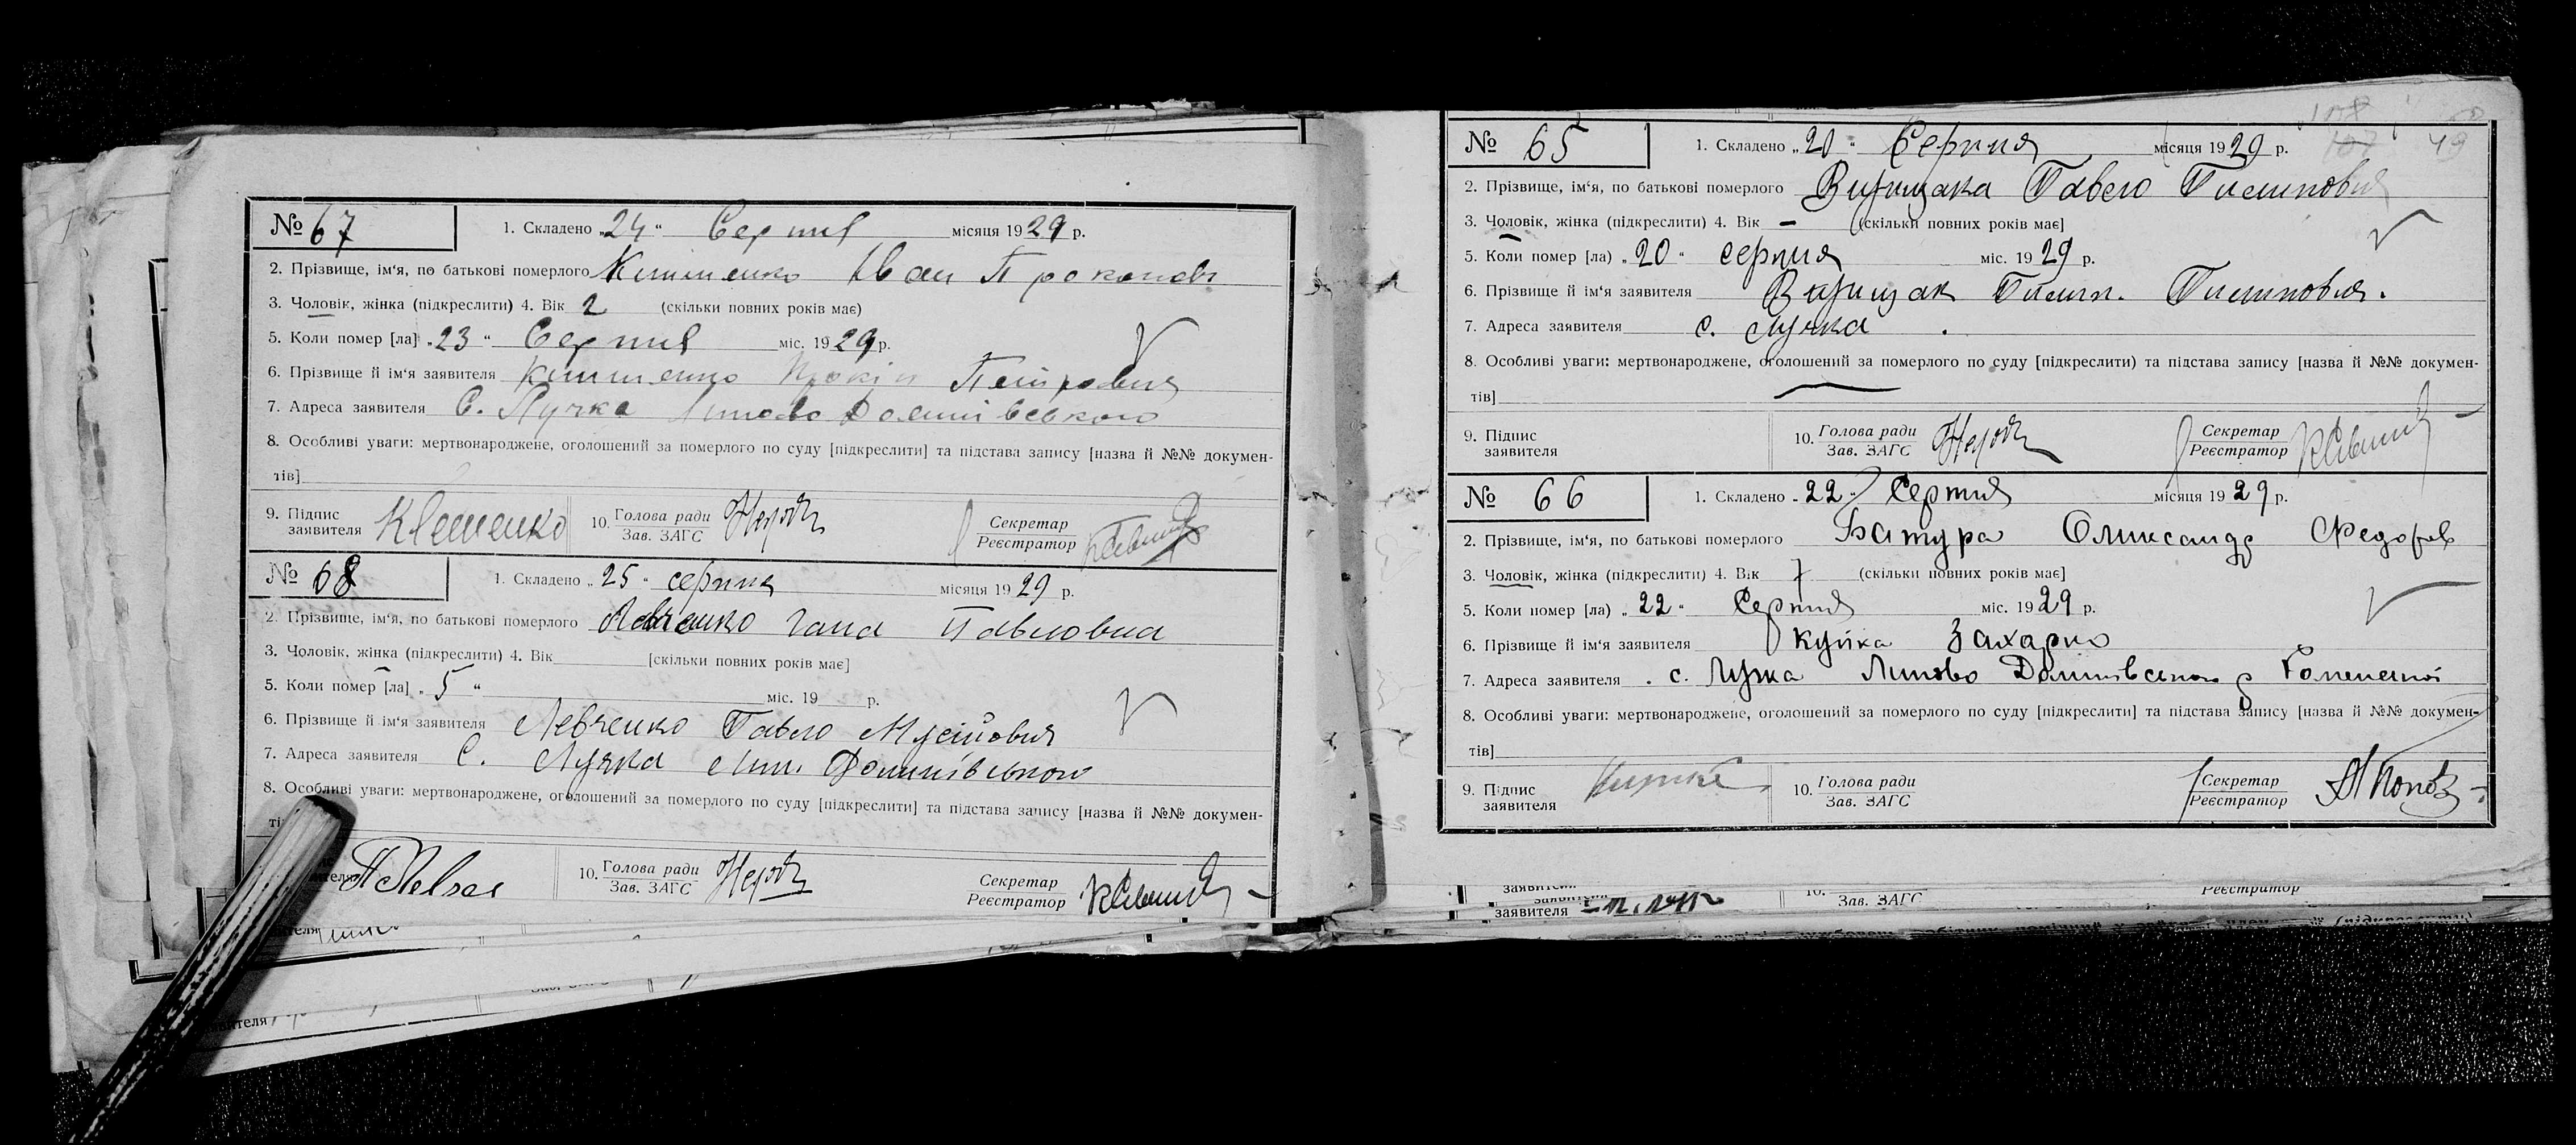 № 67 1. Складено „24“ Серпня місяця 1929 р.
2. Прізвище, ім‘я, по батькові померлого Іван
3. Чоловік, жінка (підкреслити) 4. Вік 2 (скільки повних років має)
5. Коли помер [ла] „23“ Серпня міс. 1929 р.
6. Прізвище й ім‘я заявителя Прокіп Петрович
7. Адреса заявителя С. Лучка Липово Долинівського
8. Особливі уваги: мертвонароджене, оголошений за померлого по суду [підкреслити] та підстава запису [назва й №№ докумен-
тів]
9. Підпис заявителя 10. Голова ради Зав. ЗАГС Секретар Реєстратор
№ 68 1. Складено „25“ серпня місяця 1929 р.
2. Прізвище, ім‘я, по батькові померлого Левченко Гана Павловна
3. Чоловік, жінка (підкреслити) 4. Вік [скільки повних років має]
5. Коли помер [ла] „5“ міс. 19 р.
6. Прізвище й ім‘я заявителя Левченко Павло Мусійович
7. Адреса заявителя С. Лучка Лип. Долинівського
8. Особливі уваги: мертвонароджене, оголошений за померлого по суду [підкреслити] та підстава запису [назва й №№ докумен-
10. Голова ради Зав. ЗАГС Секретар Реєстратор
№ 65 1. Складено „20“ Серпня місяця 1929 р.
2. Прізвище, ім‘я, по батькові померлого Павло Пилипович
3. Чоловік, жінка (підкреслити) 4. Вік – (скільки повних років має]
5. Коли помер (ла) „20“ серпня міс. 1929 р.
6. Прізвище й ім‘я заявителя Пилип. Пилипович.
7. Адреса заявителя с. Лучка
8. Особливі уваги: мертвонароджене, оголошений за померлого по суду [підкреслити) та підстава запису [назва й №№ докумен-
тів]
9. Підпис заявителя 10. Голова ради Зав. ЗАГС Секретар Реєстратор
№ 66 1. Складено „22“ Серпня місяця 1929 р.
2. Прізвище, ім‘я, по батькові померлого Батура Олександр Федоров
3. Чоловік, жінка (підкреслити) 4. Вік 7 (скільки повних років має]
5. Коли помер (ла) „22“ Серпня міс. 1929 р.
6. Прізвище й ім‘я заявителя Захарко
7. Адреса заявителя с. Лучка Липово Долинівського
8. Особливі уваги: мертвонароджене, оголошений за померлого по суду [підкреслити] та підстава запису [назва й №№ докумен-
тів]
9. Підпис заявителя 10. Голова ради Зав. ЗАГС Секретар Реєстратор